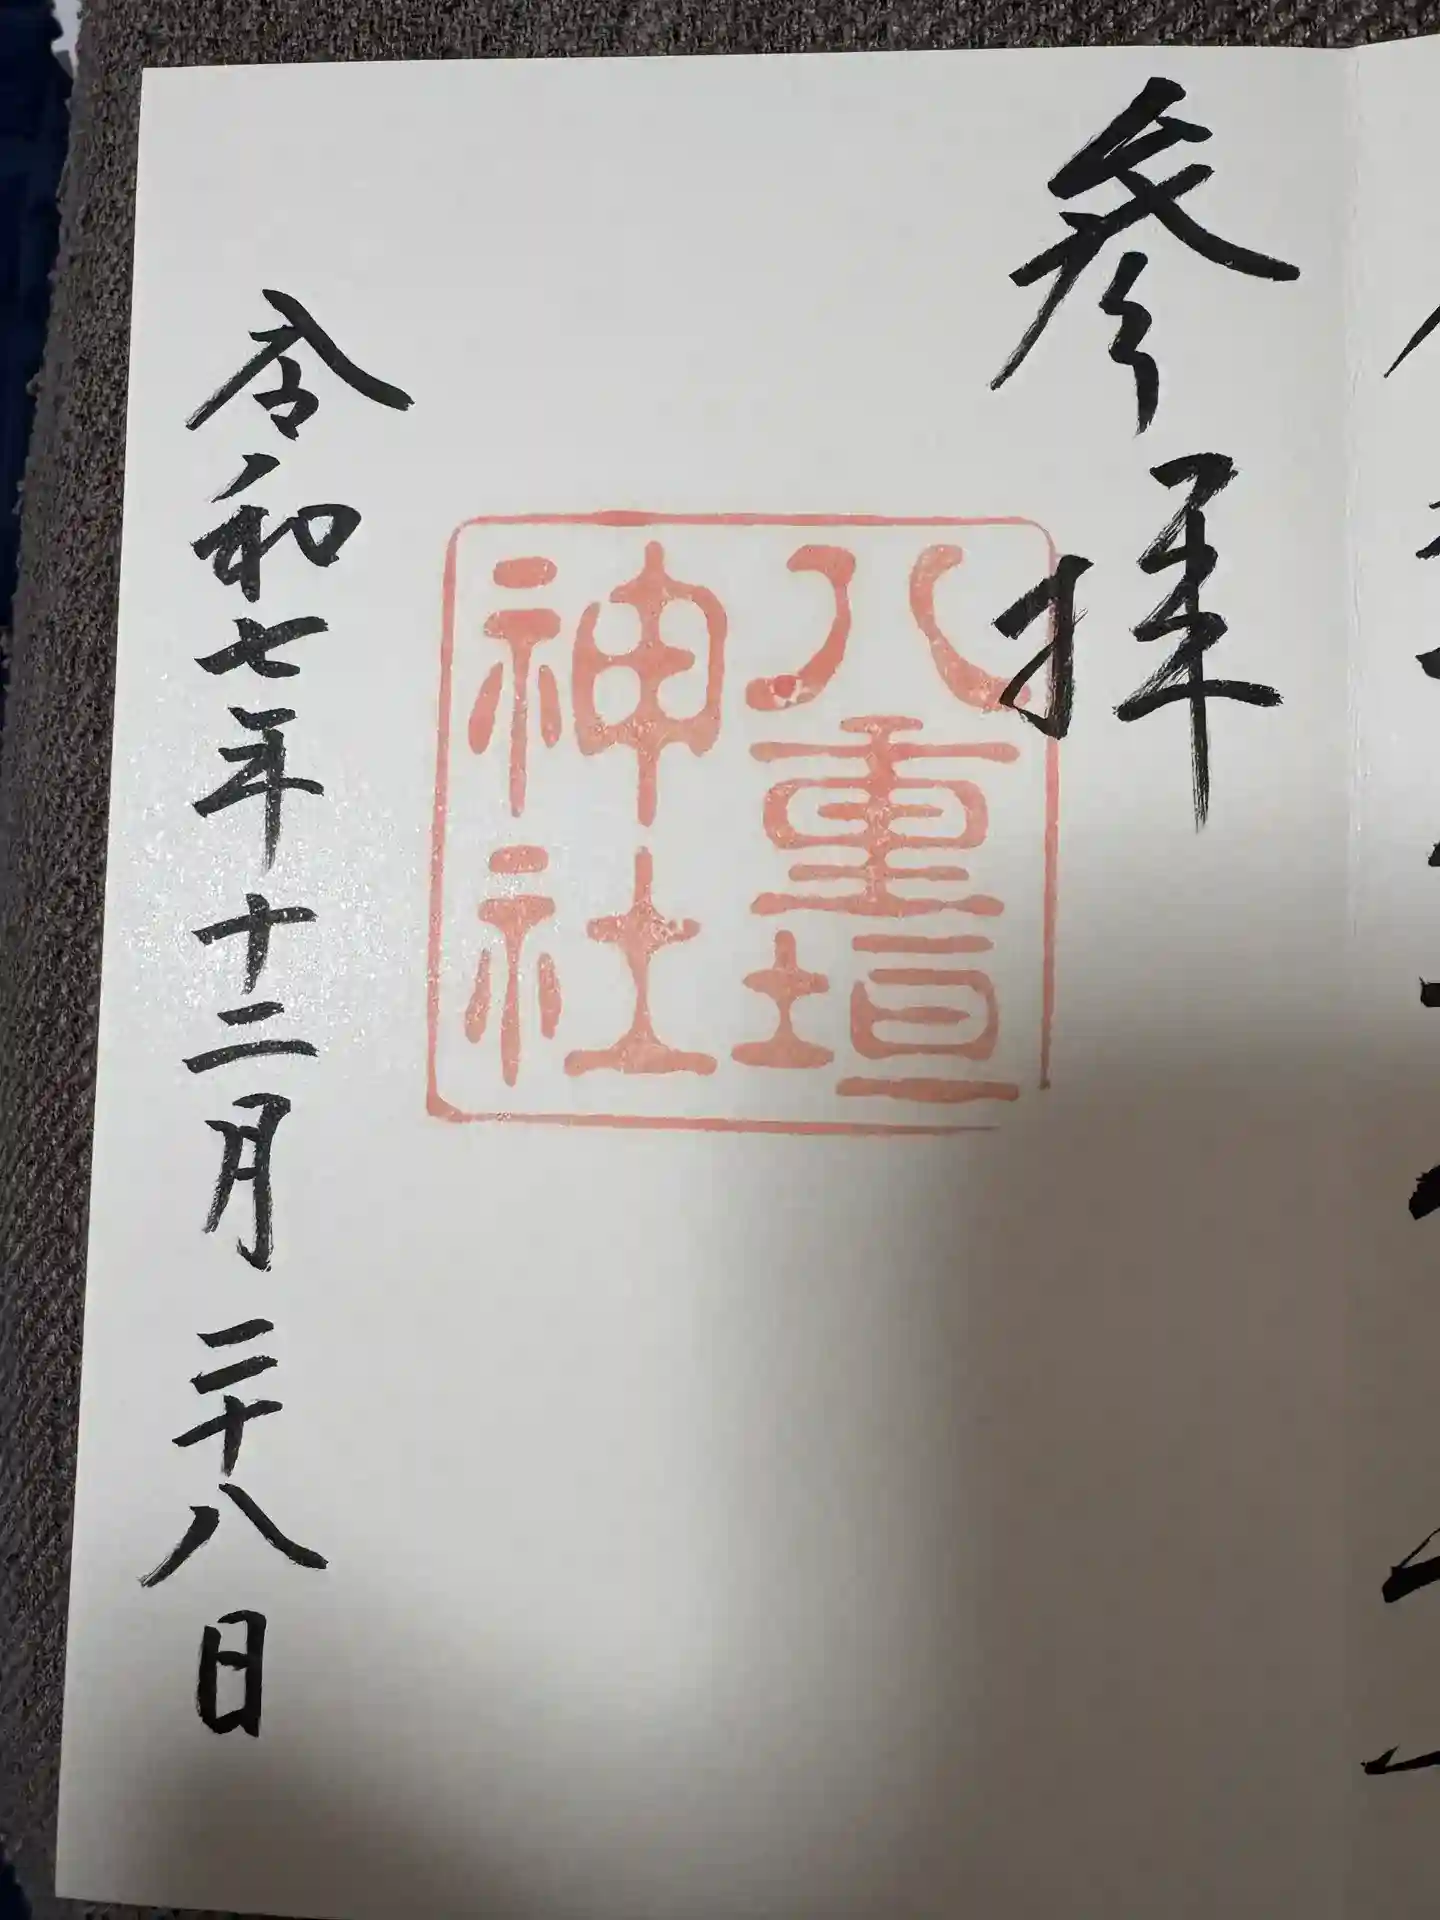 参拝
八重垣
神社
令和七年十二月二十八日